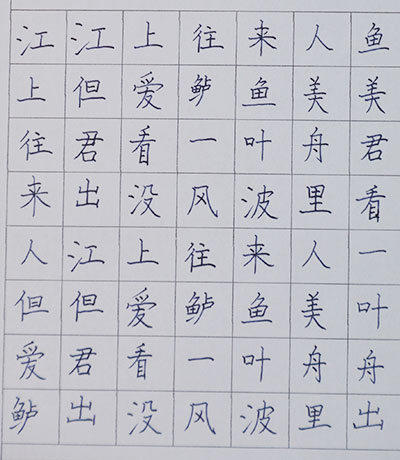 江江上往来人鱼
上但爱鲈鱼美美
往君看一叶舟君
来出没风波里看
人江上往来人一
但但爱鲈鱼美叶
爱君看一叶舟舟
鲈出没风波里出